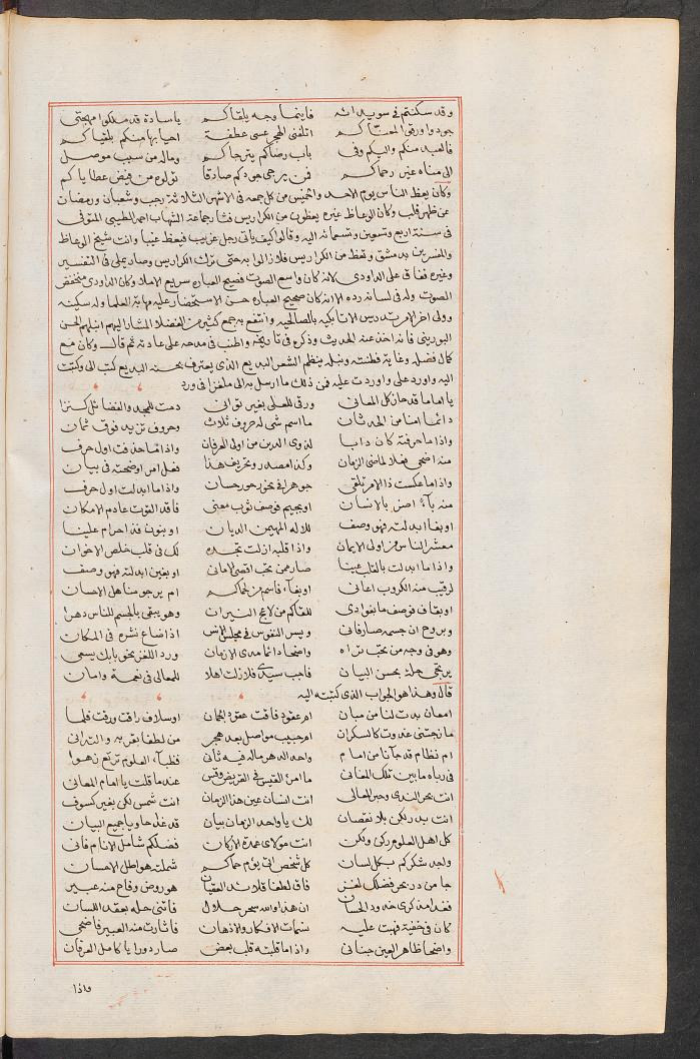 وقد سكنتم في سويدائه فاينما وجه يلقاكم ياسادة قد ملكوا مهجتي
جودوا ورقوا لمعناكم لتلفتي الحجر عسى عطفة احيا بها منكم بلقياكم
فالعبد منكم واليكم وفى باب رضاكم يترجاكم وماله من سبب موصل
الى مناه غير رحماكم فمن يرجي جودكم صادقا نولوه من فيض عطاياكم
وكان يعظ الناس يوم الاحد والخميس من كل جمعة في الاشهر الثلاثة رجب وشعبان ورمضان
عن ظهر قلب وكان الوعاظ غيره يعظون من الكراريس فشار جماعة الشهاب احمد الطيبي المتوفى
فى سنة اربع وتسعين وتسعمائة اليه وقالوا كيف ياتي رجل غريب فيعظ غيبا وانت شيخ الوعاظ
والمفسرين بدمشق وتعظ من الكراريس فلازالوا به حتى ترك الكراريس وصار يملى فى التفسير
وغيره ففاق على الداودى لانه كان واسع الصوت فصيح العبارة سريع الاملا وكان الداودى منخفض
الصوت وله فى لسانه رده الا انه كان صحيح العبارة حسن الاستحضار عليه مهابة العلما وله سكينة
وولى اخر الامر تدريس الاتابكية بالصالحية وانتفع به جمع كثير من الفضلا المشار اليهم انبلهم الحسن
البوريني فانه اخذ عنه الحديث وذكره فى تاريخه واطنب فى مدحه على عادته ثم قال وكان مع
كمال فضله وغاية فطنته ونبله ينظم الشعر البديع الذى يعترف بحسنه البديع كتب الى وكتبت
اليه واورد على واوردت عليه فمن ذلك ما ارسل به الى ملغزا فى ورد
يا اماما قد حاز كل المعانى ورقى للعلى بغير توانى دمت للمجد والفضائل كنزا
دائما امنا من الحدثان ما اسم شى له حروف ثلاث وحروف تزيد فوق ثمان
واذا ما حرفته كان دابا لذوى الدين من اولى العرفان واذا ما حذفت اول حرف
منه اضحى فعلا لماضى الزمان وكذا مصدر وتحريف هذا فعل امر اوضحته فى بيان
واذا ما عكست ذا الامر تلقى جوهرا فى نحور حور حسان واذا ما ابدلت اول حرف
منه باء اضر بالانسان او بجيم فوصف ثوب معنى فاقد القوت عادم الامكان
او بفا ابدلته فهو وصف للاله المهيمن الديان او بنون فذا حرام علينا
معشر الناس من اولى الايمان واذا قلبه ازلت تجده لك فى قلب خلص الاخوان
واذا ما ابدلت بالقلب عينا صار من نحب اقصى الامانى او بغين ابدلته فهو وصف
لرقيب منه الكروب اعانى او بفاء فاسم من نحاكم ام يرجو مناهل الاحسان
او بقاف فوصف ما بفوادى للقاكم من لاعج النيران وهو يبقى بالجسم للناس دهرا
وبروح ان جسمه صار فانى ويسر النفوس فى مجلس الانس اذا ضاع نشره فى المكان
وهو فى وجه من نحب تراه واضحا دائما مدى الازمان ورد اللغز نحو بابك يسعى
يرتجى حله بحسن البيان فاجب سيدى فلازلت اهلا للمعالى فى نعمة وامان
قال وهذا هو الجواب الذى كتبته اليه
امعان بدت لنا من مبان ام عقود فاقت عقود الجمان او سلاف راقت ورقت فلما
مازجتنى غدوت كالسكران ام حبيب مواصل بعد هجر من لطفا بقربه والتدانى
ام نظام قد جاءنا من امام واحد الدهر ماله فيه ثانى فلباء العلوم ترتع زهوا
فى رباه ما بين تلك المغانى ما امرئ القيس فى القريض وقس عند ما قلت يا امام المعانى
انت بحر الندى وحبر المعالى انت انسان عين هذا الزمان انت شمس لكن بغير كسوف
انت بدر لكن بلا نقصان لك يا واحد الزمان بيان قد غدا حاويا جميع البيان
كل اهل العلوم ركن ولكن انت مولاى عمدة الاركان فضلكم شامل الانام فانى
واجد شكركم بكل لسان كل شخص اتى يوم حماكم شملته هواطل الاحسان
جا من در بحر فضلك لغز فاق لطفا قلائد العقيان هو روض وفاح منه عبير
فغدا مذكرى خدود الحسان ان هذا والله سحر حلال فاتنى حله بعقد اللسان
كان فى خفية فهبت عليه نسمات الافكار والاذهان فاثارت منه العبير فاضحى
واضحا ظاهرا لعين جنانى واذا ما قلبته قلب بعض صار دورا يا كامل العرفان
واذا